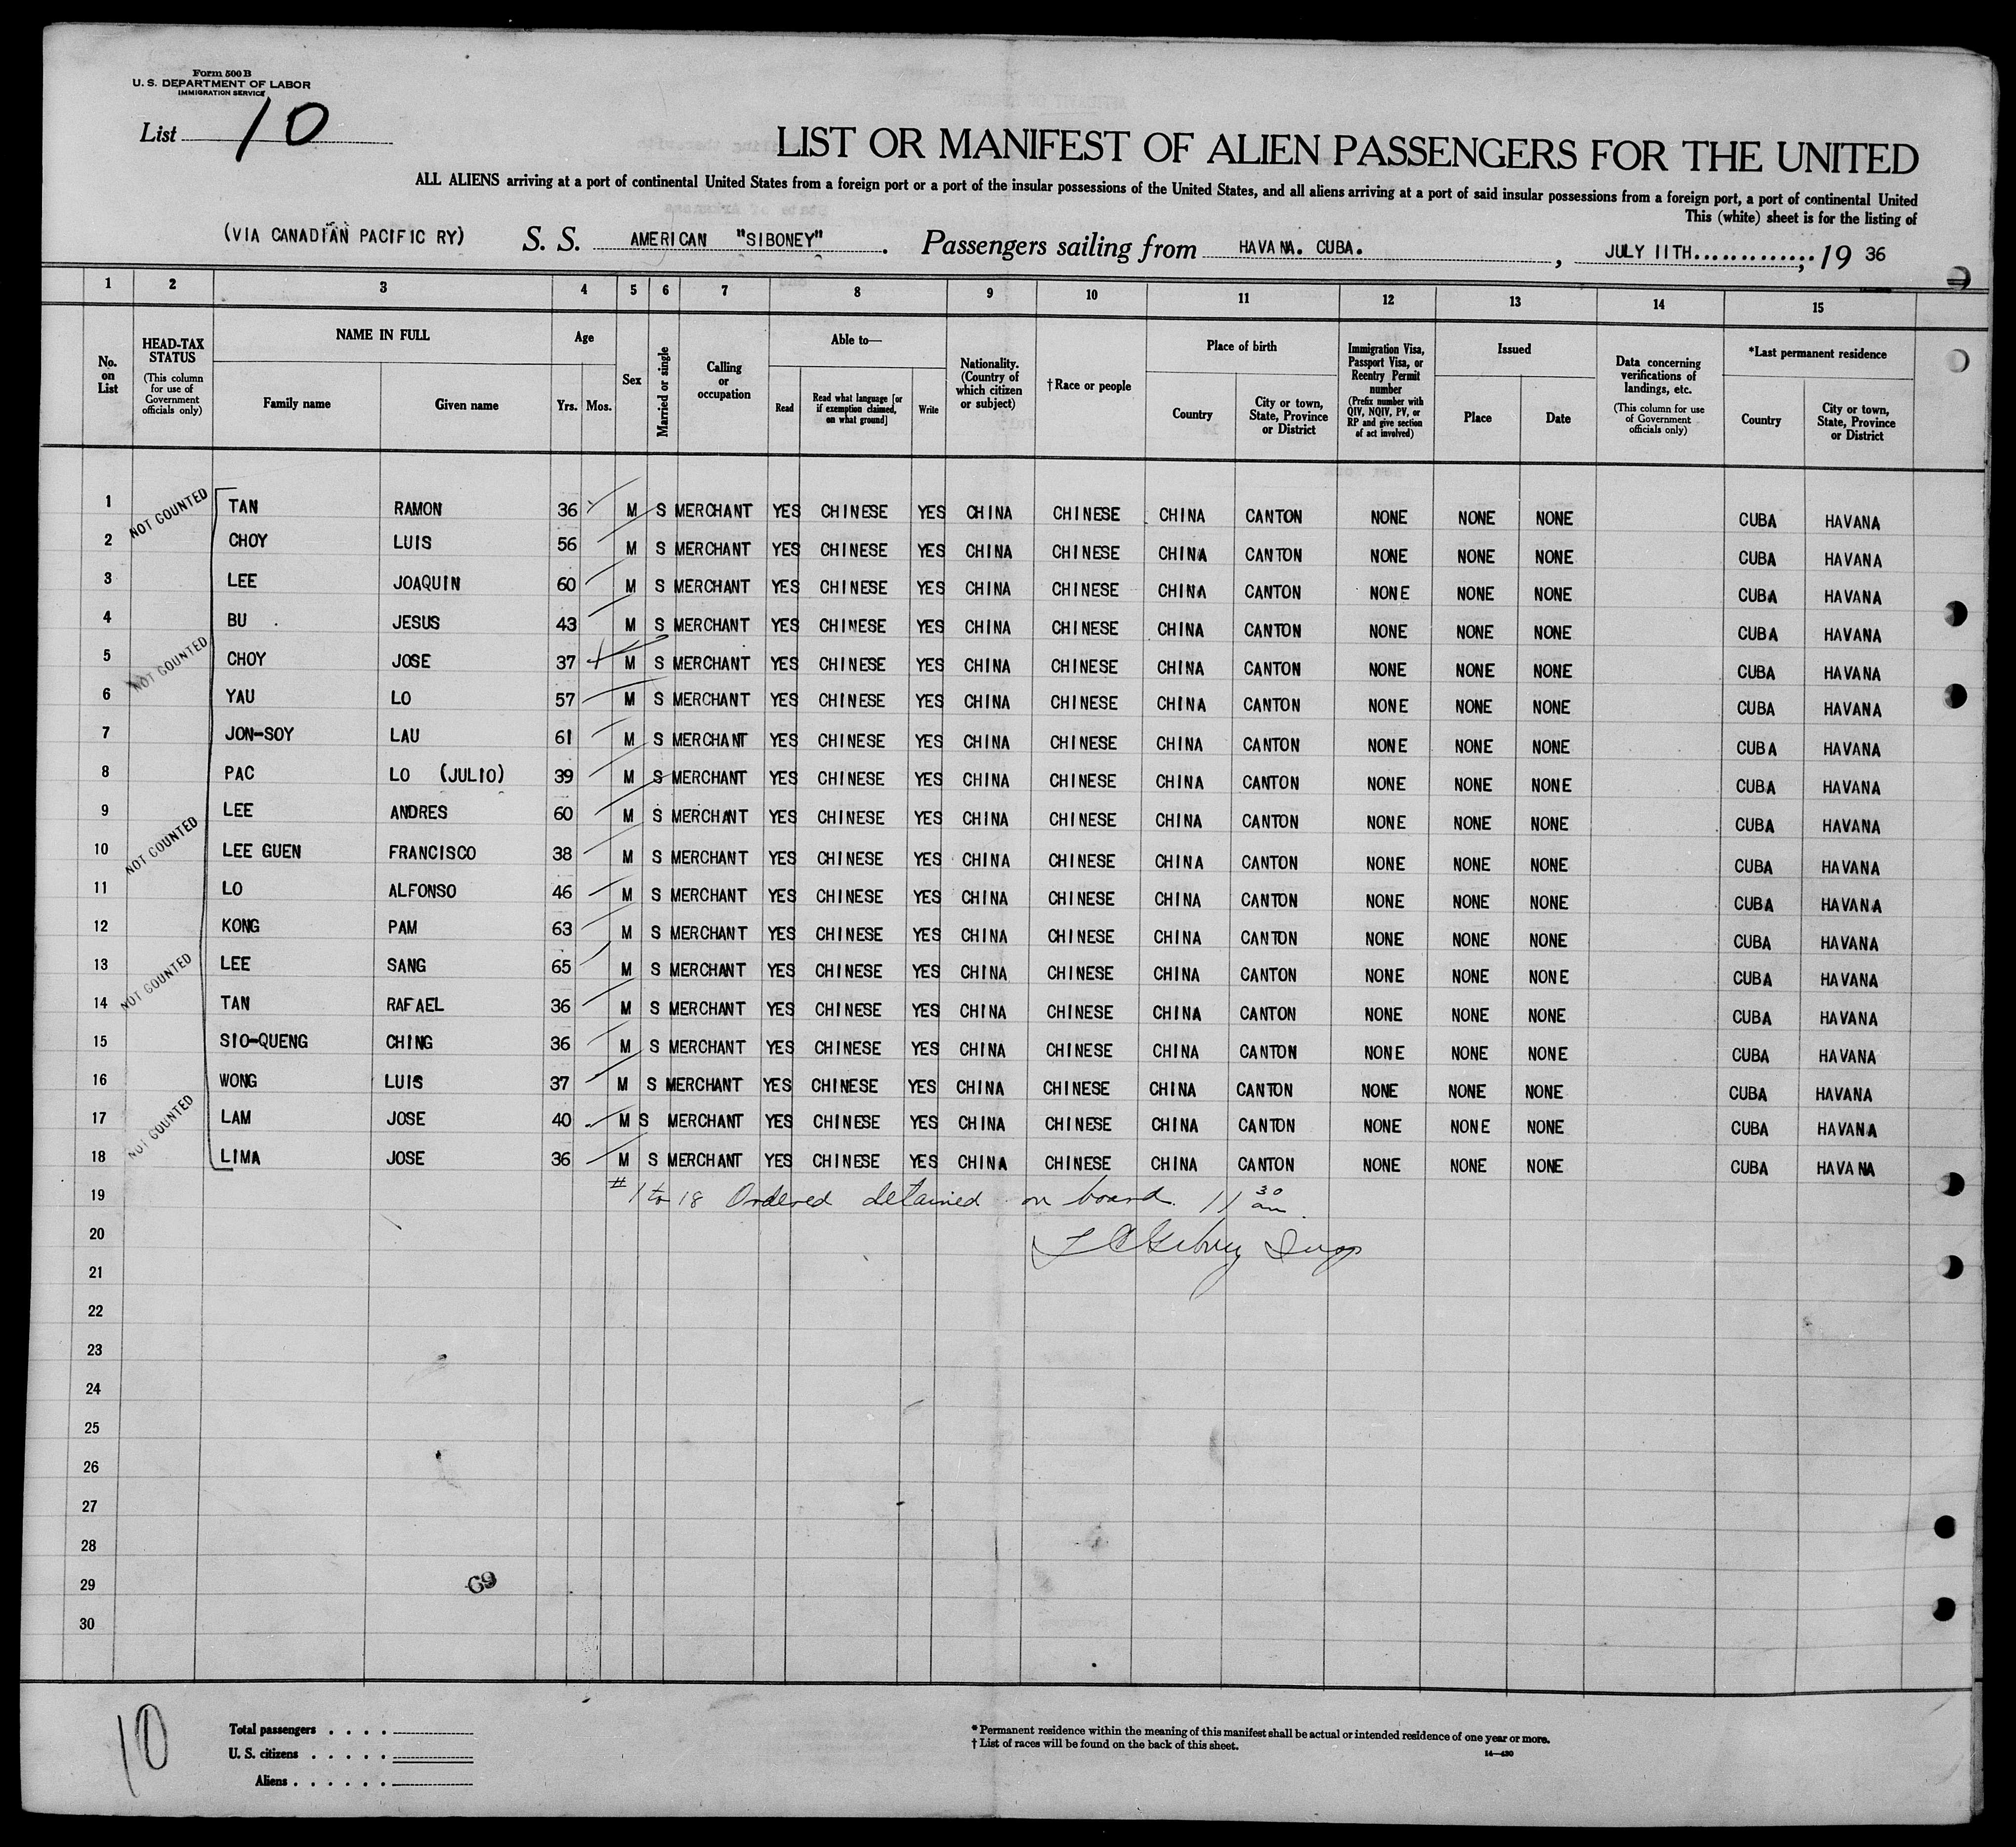 Form 500 B
U. S. DEPARTMENT OF LABOR
IMMIGRATION SERVICE
List 10
LIST OR MANIFEST OF ALIEN PASSENGERS FOR THE UNITED
ALL ALIENS arriving at a port of continental United States from a foreign port or a port of the insular possessions of the United States, and all aliens arriving at a port of said insular possessions from a foreign port, a port of continental United
This (white) sheet is for the listing of
(VIA CANADIAN PACIFIC RY) S. S. AMERICAN "SIBONEY". Passengers sailing from HAVANA. CUBA. , JULY 11TH............., 19 36
1 2 3 4 5 6 7 8 9 10 11 12 13 14 15
No. on List
HEAD-TAX STATUS (This column for use of Government officials only)
NAME IN FULL
Family name Given name
Age
Yrs. Mos.
Sex
Married or single
Calling or occupation
Able to—
Read Read what language [or if exemption claimed, on what ground] Write
Nationality. (Country of which citizen or subject)
† Race or people
Place of birth
Country City or town, State, Province or District
Immigration Visa, Passport Visa, or Reentry Permit number (Prefix number with QIV, NQIV, PV, or RP and give section of act involved)
Issued
Place Date
Data concerning verifications of landings, etc. (This column for use of Government officials only)
*Last permanent residence
Country City or town, State, Province or District
1 NOT COUNTED TAN RAMON 36 M S MERCHANT YES CHINESE YES CHINA CHINESE CHINA CANTON NONE NONE NONE CUBA HAVANA
2 CHOY LUIS 56 M S MERCHANT YES CHINESE YES CHINA CHINESE CHINA CANTON NONE NONE NONE CUBA HAVANA
3 LEE JOAQUIN 60 M S MERCHANT YES CHINESE YES CHINA CHINESE CHINA CANTON NONE NONE NONE CUBA HAVANA
4 BU JESUS 43 M S MERCHANT YES CHINESE YES CHINA CHINESE CHINA CANTON NONE NONE NONE CUBA HAVANA
5 NOT COUNTED CHOY JOSE 37 M S MERCHANT YES CHINESE YES CHINA CHINESE CHINA CANTON NONE NONE NONE CUBA HAVANA
6 YAU LO 57 M S MERCHANT YES CHINESE YES CHINA CHINESE CHINA CANTON NONE NONE NONE CUBA HAVANA
7 JON-SOY LAU 61 M S MERCHANT YES CHINESE YES CHINA CHINESE CHINA CANTON NONE NONE NONE CUBA HAVANA
8 PAC LO (JULIO) 39 M S MERCHANT YES CHINESE YES CHINA CHINESE CHINA CANTON NONE NONE NONE CUBA HAVANA
9 LEE ANDRES 60 M S MERCHANT YES CHINESE YES CHINA CHINESE CHINA CANTON NONE NONE NONE CUBA HAVANA
10 NOT COUNTED LEE GUEN FRANCISCO 38 M S MERCHANT YES CHINESE YES CHINA CHINESE CHINA CANTON NONE NONE NONE CUBA HAVANA
11 LO ALFONSO 46 M S MERCHANT YES CHINESE YES CHINA CHINESE CHINA CANTON NONE NONE NONE CUBA HAVANA
12 KONG PAM 63 M S MERCHANT YES CHINESE YES CHINA CHINESE CHINA CANTON NONE NONE NONE CUBA HAVANA
13 NOT COUNTED LEE SANG 65 M S MERCHANT YES CHINESE YES CHINA CHINESE CHINA CANTON NONE NONE NONE CUBA HAVANA
14 TAN RAFAEL 36 M S MERCHANT YES CHINESE YES CHINA CHINESE CHINA CANTON NONE NONE NONE CUBA HAVANA
15 SIO-QUENG CHING 36 M S MERCHANT YES CHINESE YES CHINA CHINESE CHINA CANTON NONE NONE NONE CUBA HAVANA
16 WONG LUIS 37 M S MERCHANT YES CHINESE YES CHINA CHINESE CHINA CANTON NONE NONE NONE CUBA HAVANA
17 NOT COUNTED LAM JOSE 40 M S MERCHANT YES CHINESE YES CHINA CHINESE CHINA CANTON NONE NONE NONE CUBA HAVANA
18 LIMA JOSE 36 M S MERCHANT YES CHINESE YES CHINA CHINESE CHINA CANTON NONE NONE NONE CUBA HAVANA
19 # 1 to 18 Ordered detained on board. 11 30 am.
20
21
22
23
24
25
26
27
28
29 69
30
10
Total passengers . . . .
U. S. citizens . . . . .
Aliens . . . . . .
* Permanent residence within the meaning of this manifest shall be actual or intended residence of one year or more.
† List of races will be found on the back of this sheet.
14—430